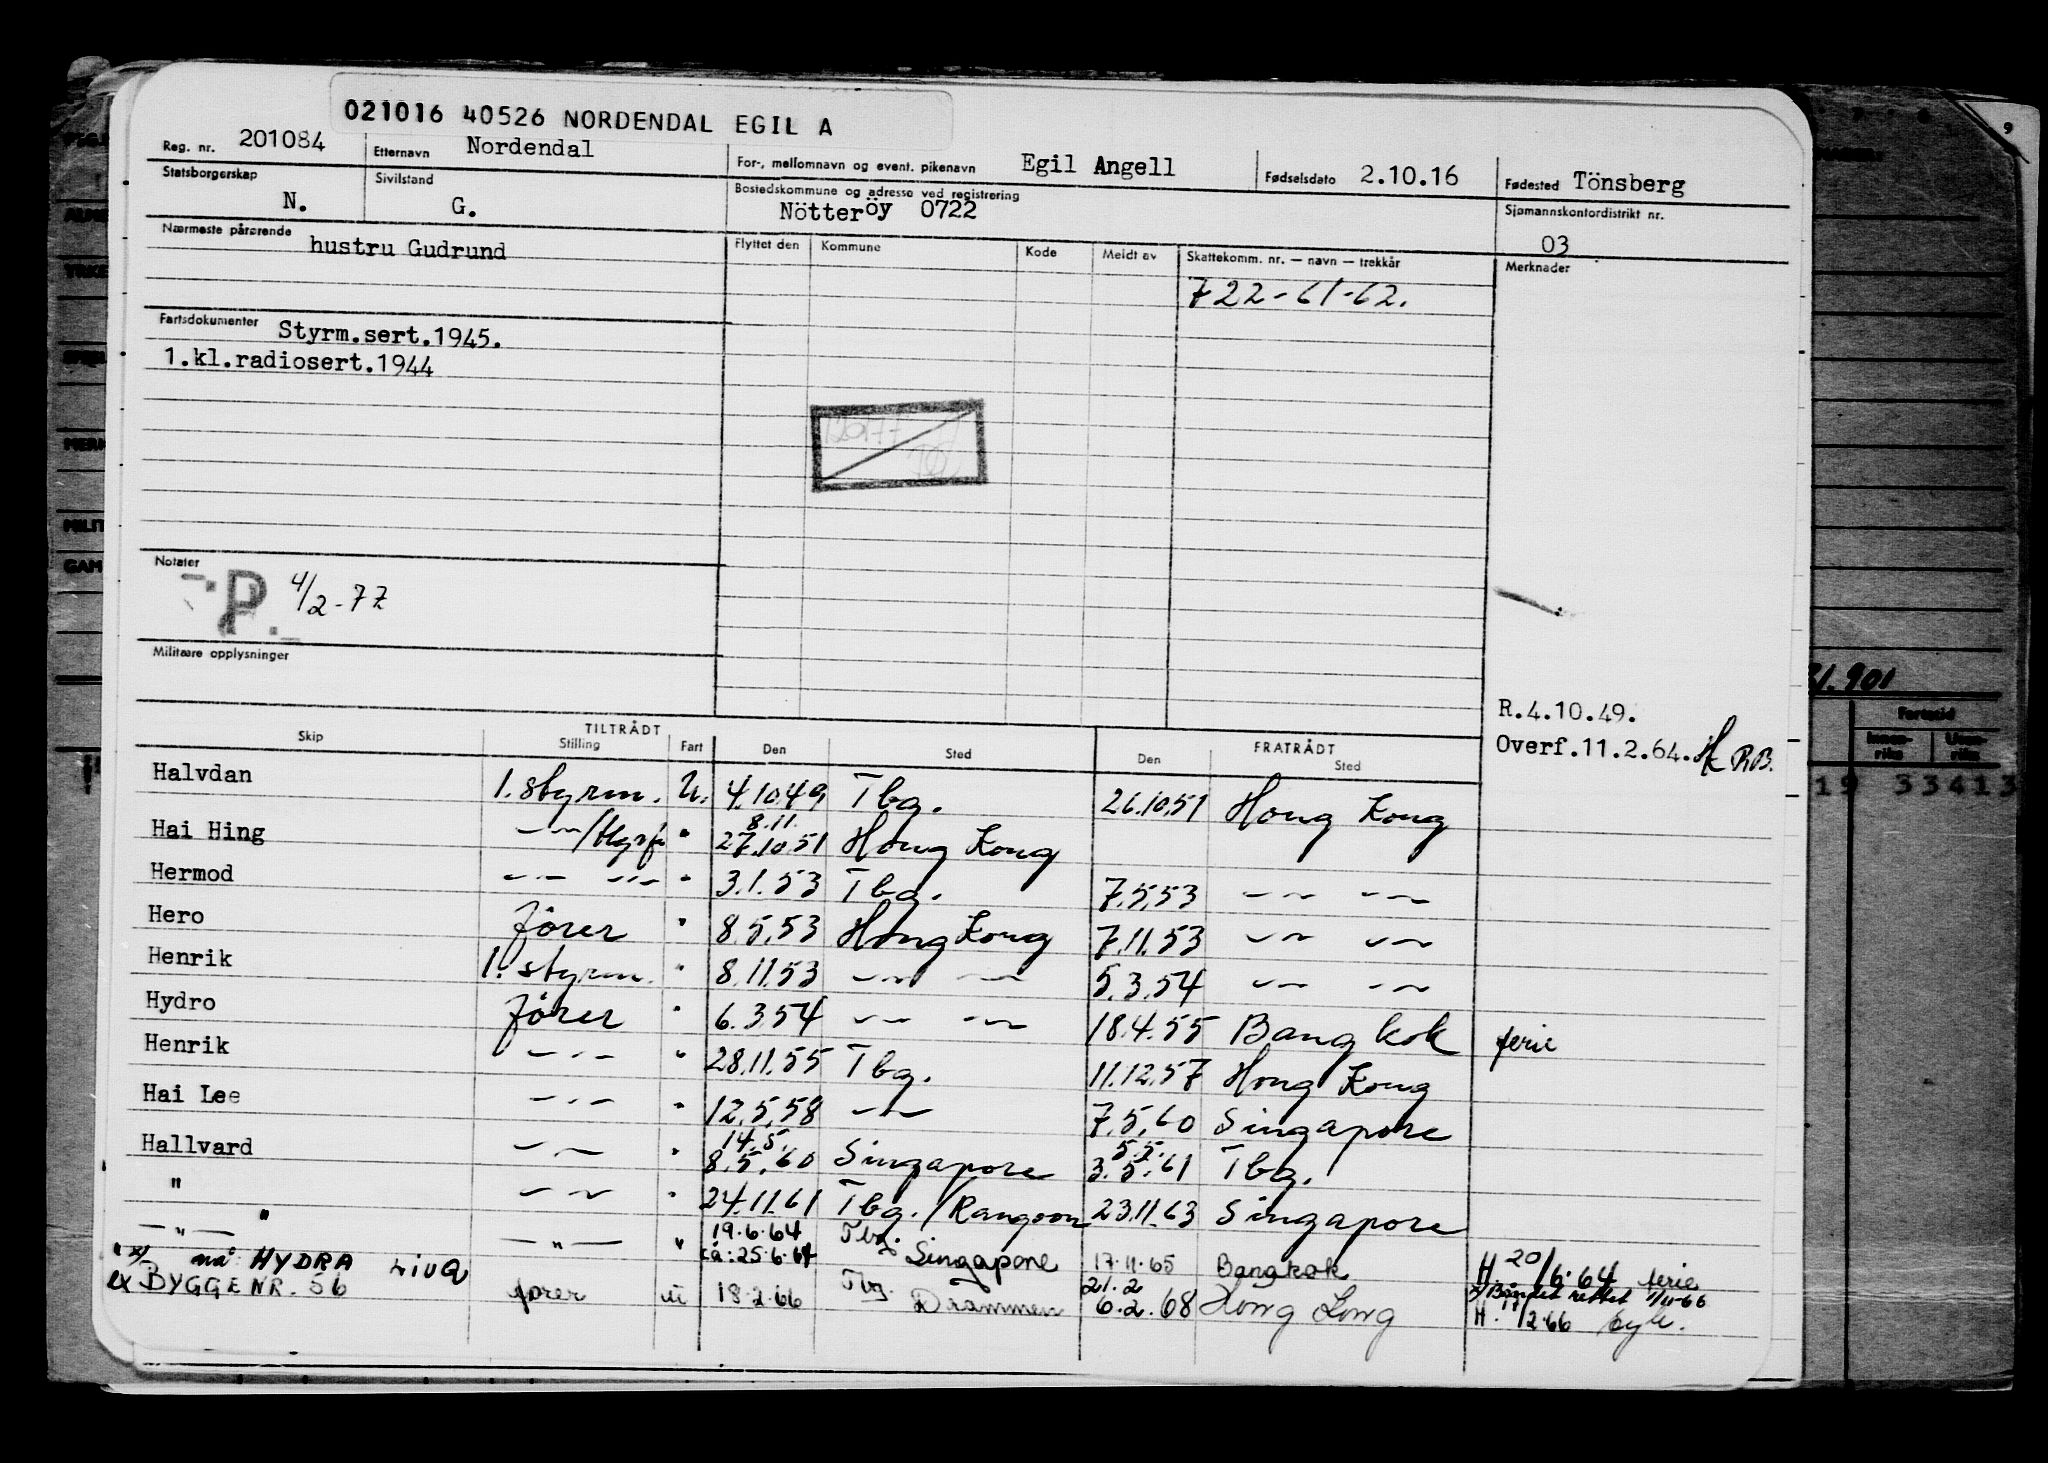 021016 40526 NORDENDAL EGIL A
Reg. nr. 201084 Etternavn Nordendal For-, mellomnavn og event. pikenavn Egil Angell Fødselsdato 2.10.16 Fødested Tönsberg
Statsborgerskap N. Sivilstand G. Bostedskommune og adresse ved registrering Nötteröy 0722 Sjømannskontordistrikt nr. 03
Nærmeste pårørende hustru Gudrund Flyttet den Kommune Kode Meldt av Skattekomm. nr. — navn — trekkår Merknader
722-61-62.
Fartsdokumenter Styrm.sert.1945.
1.kl.radiosert.1944
Notater
P. 4/2-77
Militære opplysninger
R.4.10.49.
Overf.11.2.64. RB.
TILTRÅDT FRATRÅDT
Skip Stilling Fart Den Sted Den Sted
Halvdan 1. styrm. U. 4.10.49 Tbg. 26.10.51 Hong Kong
8.11.
Hai Hing -~- " 27.10.51 Hong Kong
Hermod -~- -~- " 3.1.53 Tbg. 7.5.53 -~- -~-
Hero förer " 8.5.53 Hong Kong 7.11.53 -~- -~-
Henrik 1. styrm. " 8.11.53 -~- -~- 5.3.54 -~- -~-
Hydro förer " 6.3.54 -~- -~- 18.4.55 Bangkok ferie
Henrik -~- " 28.11.55 Tbg. 11.12.57 Hong Kong
Hai Lee -~- " 12.5.58 -~- 7.5.60 Singapore
14.5. 5.5.
Hallvard -~- " 8.5.60 Singapore 3.5.61 Tbg.
" -~- " 24.11.61 Tbg./Rangoon 23.11.63 Singapore
—"— " —"— " 19.6.64 Tbg.
x) nå HYDRA LIUQ ca: 25.6.64 Singapore 17.11.65 Bangkok H 20/6.64 ferie
21.2 x) Båndet rettet 1/11-66
ex BYGGENR. 56 fører U 18.2.66 Tbg. Drammen 6.2.68 Hong Kong H. 17/2.66
9
1.901
Fartstid
Innen-riks Uten-riks
19 33413